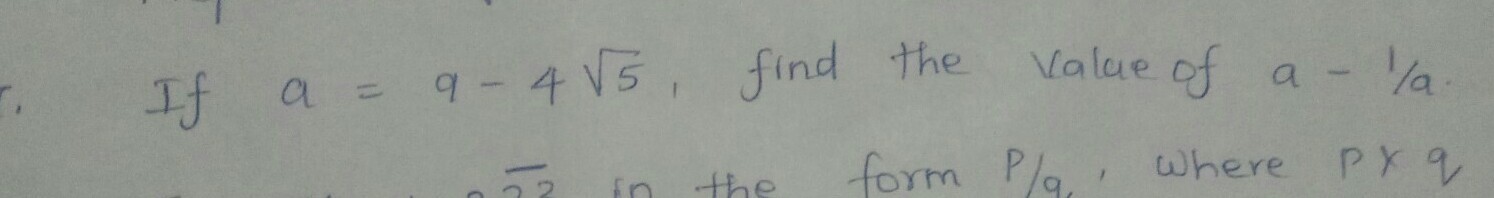 If a = 9 - 4√5, find the value of a - 1/a.
in the form P/q, where p & q